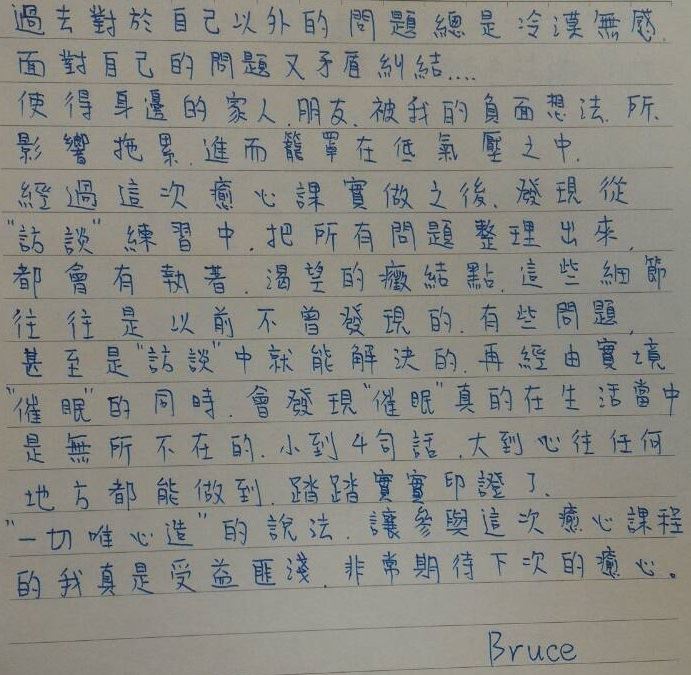 過去對於自己以外的問題總是冷漠無感.
面對自己的問題又矛盾糾結....
使得身邊的家人.朋友.被我的負面想法.所.
影響拖累.進而籠罩在低氣壓之中.
經過這次癒心課實做之後.發現從
"訪談"練習中.把所有問題整理出來.
都會有執著.渴望的癥結點.這些細節
往往是以前不曾發現的.有些問題.
甚至是"訪談"中就能解決的.再經由實境
"催眠"的同時.會發現"催眠"真的在生活當中
是無所不在的.小到4句話.大到心往任何
地方都能做到.踏踏實實印證了.
"一切唯心造"的說法.讓參與這次癒心課程
的我真是受益匪淺.非常期待下次的癒心。
Bruce